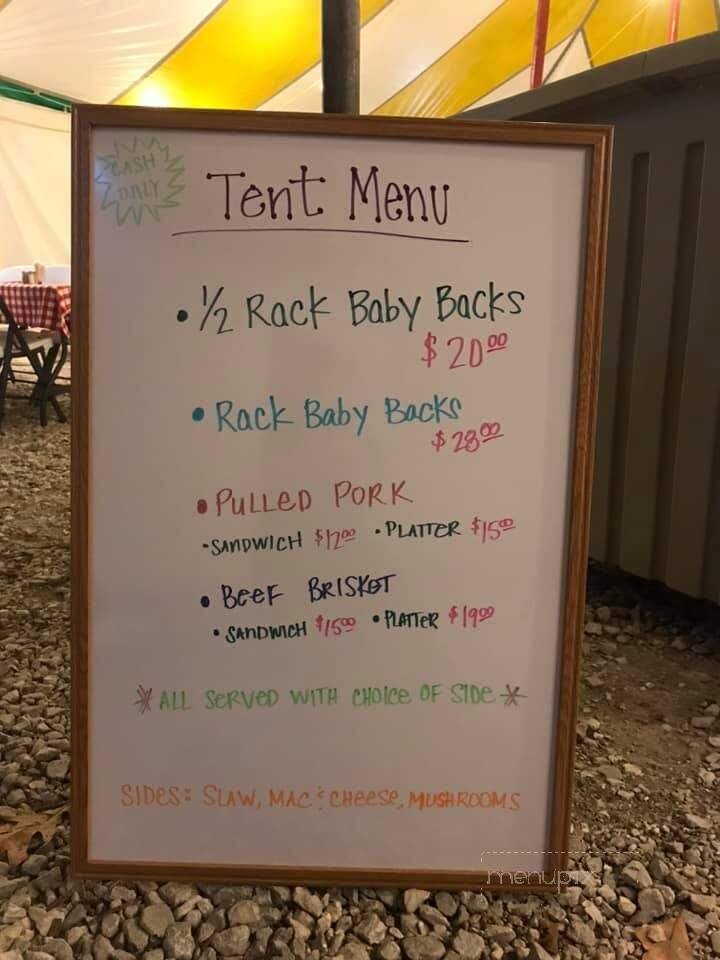 CASH
ONLY
Tent Menu
• ½ Rack Baby Backs
$20.00
• Rack Baby Backs
$28.00
• PULLED PORK
• SANDWICH $12.00 • PLATTER $15.00
• BEEF BRISKET
• SANDWICH $15.00 • PLATTER $19.00
* ALL SERVED WITH CHOICE OF SIDE *
SIDES: SLAW, MAC & CHEESE, MUSHROOMS
menupix